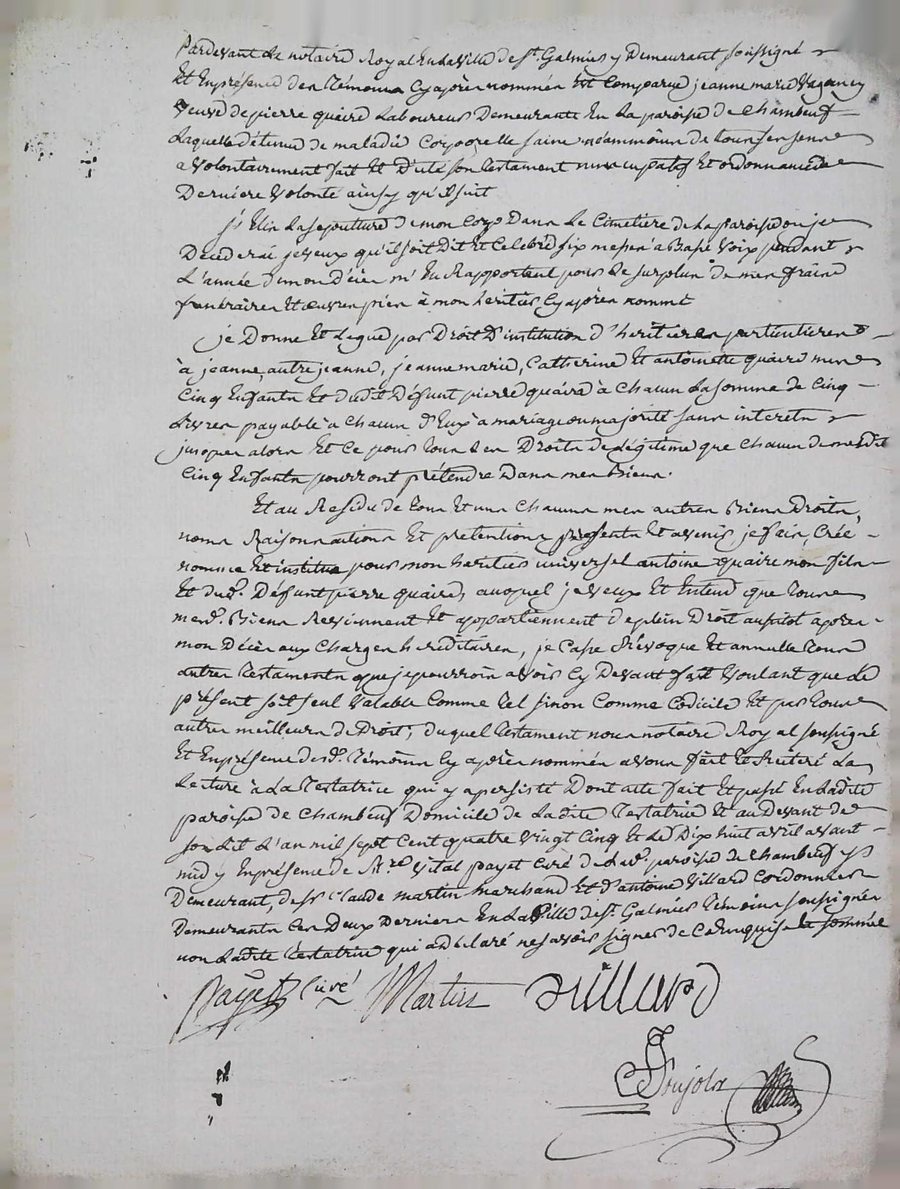 Pardevant Le notaire Royal En La Ville de st. Galmier y Demeurant soussigné
Et En présence des Témoins Cy après nommés Est Comparue jeanne marie Vaganey
Veuve de pierre quaire Laboureur Demeurante En La paroisse de Chambeuf
Laquelle détenue de maladie Corporelle saine néammoins de tous ses sens
a Volontairement fait Et Dicté son testament nuncupatif Et ordonnance de
Derniere Volonté ainsy qu'il suit
j'Elis La sepulture de mon Corps Dans Le Cimetiere de La paroisse ou je
Décéderai je veux qu'il soit Dit Et Celebré six messes a Basse Voix pendant
L'année de mon décès m'En Rapportant pour Le surplus de mes fraix
funéraires Et œuvres pies à mon heritier Cy après nommé
je Donne Et Legue par Droit D'institution d'heritieres particulieres
à jeanne, autre jeanne, jeanne marie, Catherine Et antoinette quaire mes
Cinq Enfants Et dudit Défunt pierre quaire à Chacun La somme de Cinq
Livres payable à Chacun d'Eux à mariage ou majorité sans interets
jusques alors Et Ce pour tous Les Droits de Légitime que Chacun de mesdits
Cinq Enfants pourront prétendre Dans mes Biens.
Et au Residu de tous Et uns Chacuns mes autres Biens Droits,
noms Raisons actions Et pretentions présents Et avenir je fais, Crée
nomme Et institue pour mon heritier universel antoine quaire mon fils
Et dud. Défunt pierre quaire, auquel je veux Et Entend que tous
med. Biens Reviennent Et appartiennent de plein Droit aussitot apres
mon Décès aux Charges hereditaires, je Casse Révoque Et annulle tous
autres testaments que je pourrois avoir Cy Devant fait Voulant que Le
présent soit seul Valable Comme tel sinon Comme Codicile Et par tous
autres meilleurs de Droit, duquel testament nous notaire Royal soussigné
Et En présence desd. Témoins Cy après nommés avons fait Et Reiteré La
Lecture à La testatrice qui y a persisté Dont acte fait Et passé En Ladite
paroisse de Chambeuf Domicile de Ladite testatrice Et au Devant de
son Lit L'an mil sept Cent quatre Vingt Cinq Et Le Dix huit avril avant
midy En présence de Mre. Vital payet Curé de Lad. paroisse de Chambeuf y
Demeurant, de sr Claude martin marchand Et d'antoine Villard Cordonnier
Demeurants Ces Deux Derniers En La Ville de st. Galmier Témoins soussignés
non Ladite testatrice qui a déclaré ne savoir signer de Ce Enquise Et sommée
Payet Curé Martin Villard
Poujols